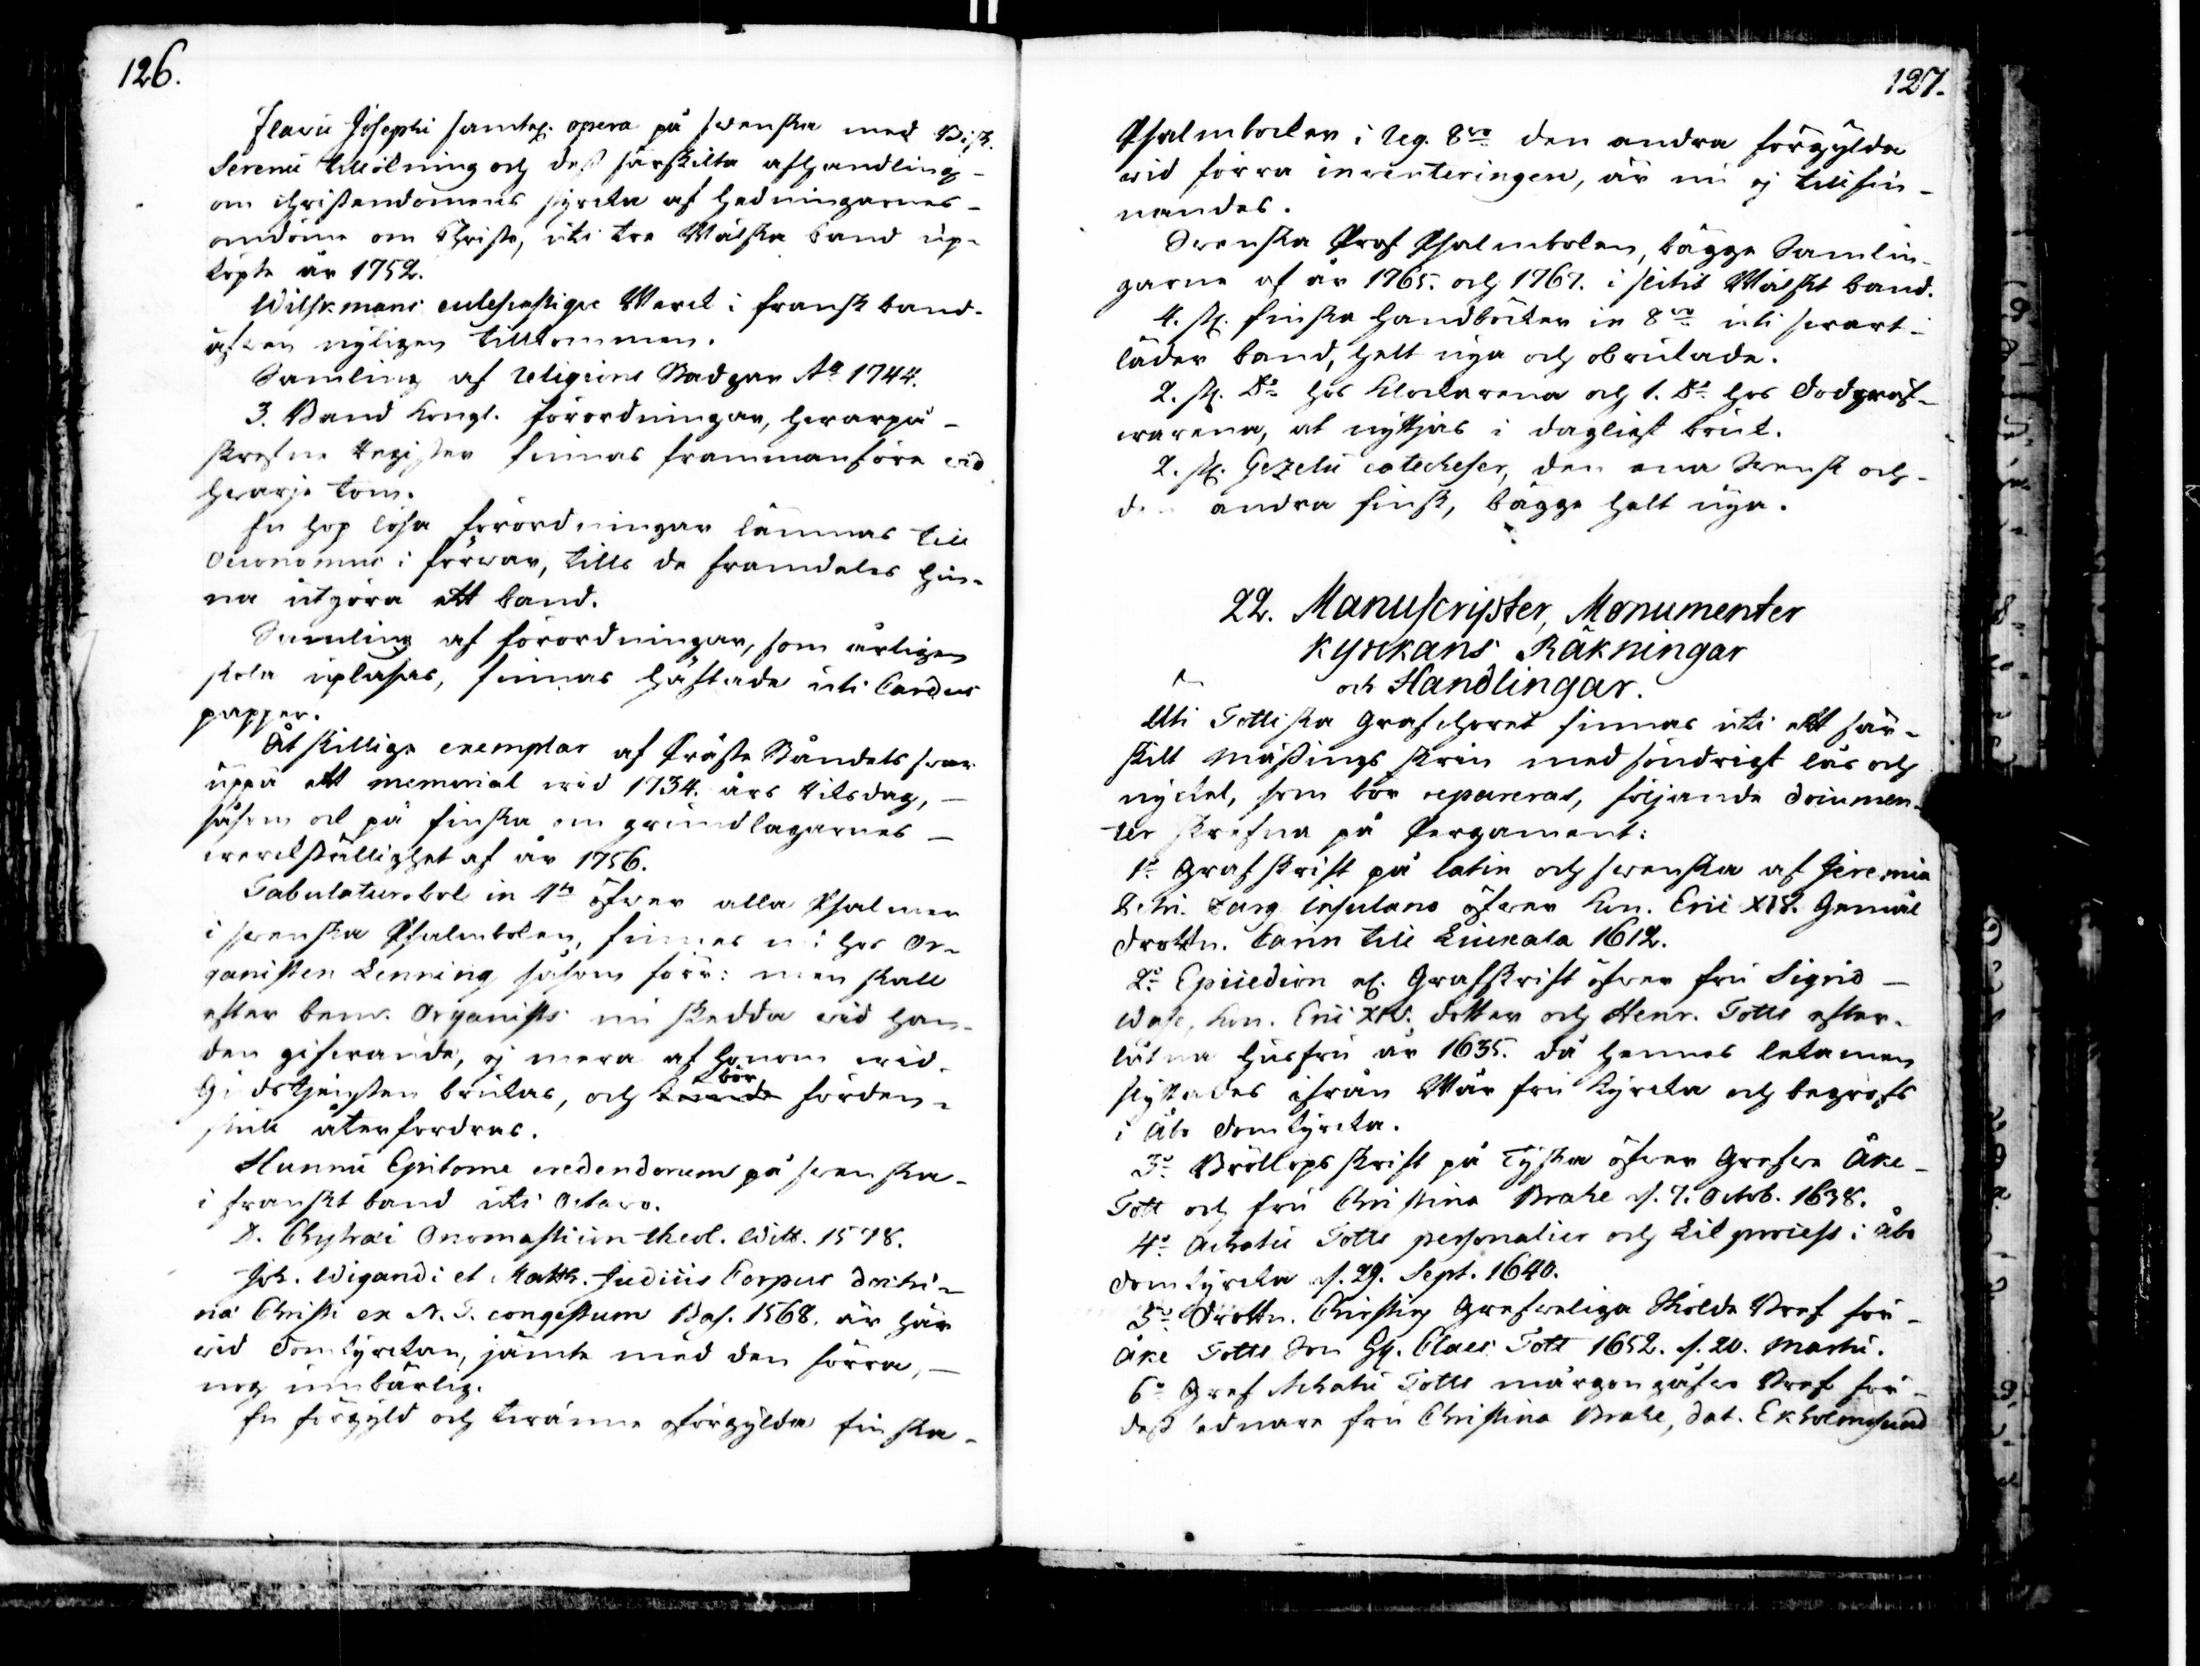 126.
Flavii Josephi samtel. opera på swenska med Bisk.
Serenii tillökning och dess särskilta afhandling
om christendomens styrcka af hedningarnes
omdöme om Christo, uti tre Wälska band up-
köpte år 1752.
Wilskmans eclesiastique Werck i fransk band
äfwen nyligen tillkommen.
Samling af religions Stadgar Aº 1744.
3. Band Kongl. förordningar, hwarpå
skrefne Register finnas frammanföre wid
hwarje tom.
En hop lösa förordningar lämnas till
Oeconomus i förwar, tills de framdeles hin-
na utgöra ett band.
Samling af förordningar, som årligen
skola upläsas, finnas häftade uti Cardus
papper.
Åtskillige exemplar af Präste Ståndets swar
uppå ett memorial wid 1734. års Riksdag,
såsom ock på finska om grundlagarnes
werckställighet af år 1756.
Tabulatursbok in 4to öfwer alla Psalmer
i swenska Psalmboken, finnes nu hos Or-
ganisten Lenning såsom förr: men skall
efter bem. Organists nu skedda wid han-
den gifwande, ej mera af honom wid
Gudstjensten brukas, och bör förden-
skull återfordras.
Hunnii Epitome credendorum på swenska
i franskt band uti Octavo.
D. Chytræi Onomasticon theol. Witt. 1578.
Joh. Wigandi et Matth. Judicis Corpus doctri-
næ Christi ex N. T. congestum Bas. 1568. är här
wid Domkyrckan, jämte med den förra,
nog umbärlig.
En förgyld och twänne oförgylda finska
127.
Psalmböcker i reg. 8vo den andra förgylda
wid förra inventeringen, är nu ej tillfin-
nandes.
Swenska Prof Psalmboken, bägge Samlin-
garne af år 1765. och 1767. i slitit Wälskt band.
4. st. finska Handböcker in 8vo uti swart
läder band, helt nya och obrukade.
2. st. Dº hos Klockarena och 1. Dº hos Dödgräf-
warena, at nyttjas i dagligt bruk.
2. st. Gezelii catecheser, den ena Swensk och
den andra finsk, bägge helt nya.
22. Manuscripter, Monumenter
Kyrckans Räkningar
och Handlingar.
Uti Tottiska Grafchoret finnas uti ett sär-
skilt Mässings skrin med söndrigt lås och
nyckel, som bör repareras, följande documen-
ter skrefna på Pergament:
1º Grafskrift på latin och swenska af Jeremia
öfwer Kon. Eric XIV. Gemål
Drottn. Carin till Liuxala 1612.
2º Epicedion el. Grafskrift öfwer fru Sigrid
Wase, Kon. Eric XIV. dotter och Henr. Totts efter-
låtna husfru år 1635. då hennes lekamen
flyttades ifrån Wår fru Kyrcka och begrofs
i Åbo Domkyrcka.
3º Bröllops skrift på Tyska öfwer Grefwe Åke
Tott och fru Christina Brahe d. 7. Octob. 1638.
4º Achatii Totts personalier och Lik process i Åbo
Domkyrcka d. 29. Sept. 1640.
5º Drottn. Christin Grefweliga Skölde Bref för
Åke Totts Son Gr. Claes Tott 1652. d. 20. Martii.
6º Gref Achatii Totts morgongåfwo Bref för
dess ednare fru Christina Brahe, dat. Ekholmsund